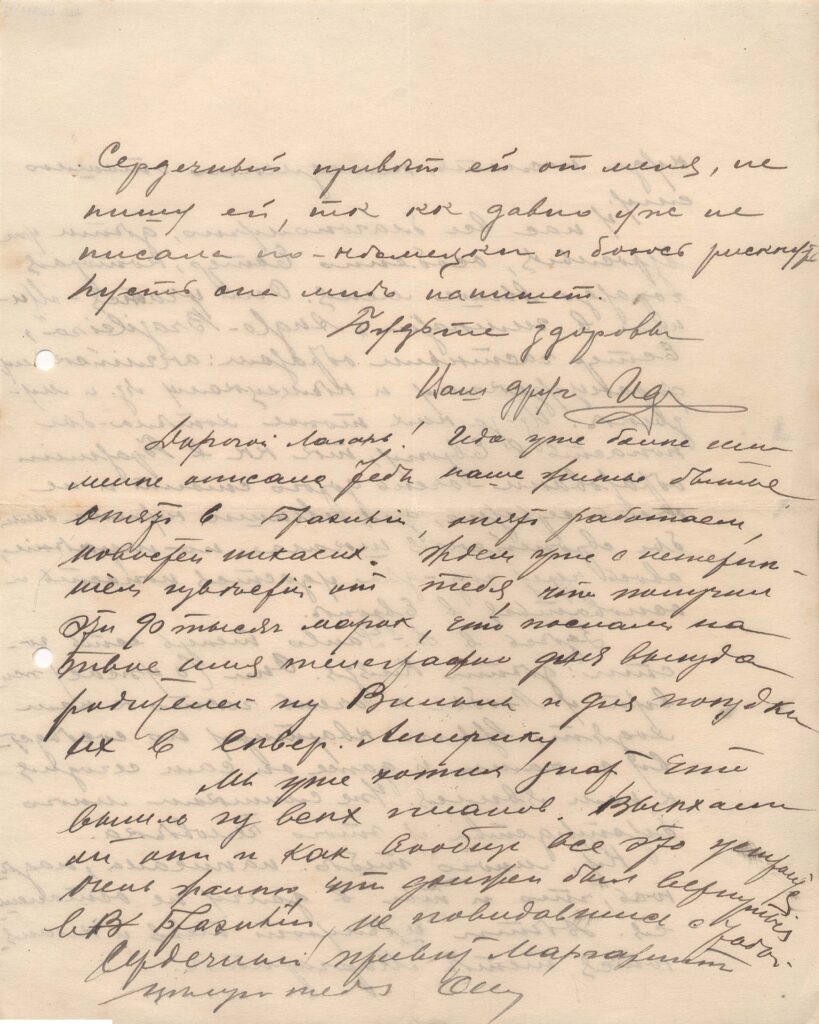 Сердечный привѣт ей от меня, не
пишу ей, тк кк давно уж не
писала по-нѣмецки и боюсь рискнуть
Пусть она мнѣ напишет.
Будьте здоровы
Ваш друг Ида
Дорогой Лазарь! Ида уже более или
менее описала тебе наше житье бытье,
опять в Бразилии, опять работаем,
новостей никаких. Ждем уже с нетерпи-
нием известий от тебя, что получил
эти 90 тысяч марок, что послали на
твое имя телеграфно для выезда
родителей из Вильны и для поездки
их в Север. Америку
Мы уже хотим знать что
вышло из всех планов. Выехали
ли они и как вообще все это
Очень жалко, что должен был вернуться
в Бразилии, не повидавшись с тобой.
Сердечный привет Маргарит
целую тебя